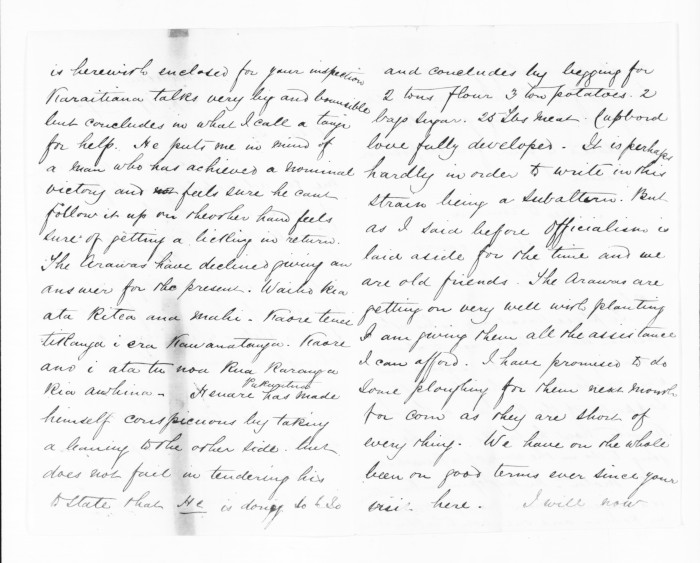 is herewith enclosed for your inspection
Karaitiana talks very big and bounsible
but concludes in what I call a tangi
for help. He puts me in mind of
a man who has achieved a nominal
victory and not feels sure he cant
follow it up on the other hand feels
sure of getting a licking in return.
The Arawas have declined giving an
answer for the present. Waiho kia
ata kitea ana mahi. Kaore tenei
tikanga i era Kawanatanga. Kaore
ano i ata tu noa kua karanga
kia awhina - Henare has made
himself conspicuous by taking
a leaning to the other side. but
does not fail in tendering his
to State, that He is doing So & So
and concludes by begging for
2 tons flour 3 ton potatoes. 2
bags sugar. 25 lbs meat. Cupboard
love fully developed. It is perhaps
hardly in order to write in this
strain being a Subaltern. But
as I said before Officialism is
laid aside for the time and we
are old friends. The Arawas are
getting on very well with planting
I am giving them all the assistance
I can afford. I have promised to do
some ploughing for them next month
for corn as they are short of
every thing. We have on the whole
been on good terms ever since your
visit here. I will now